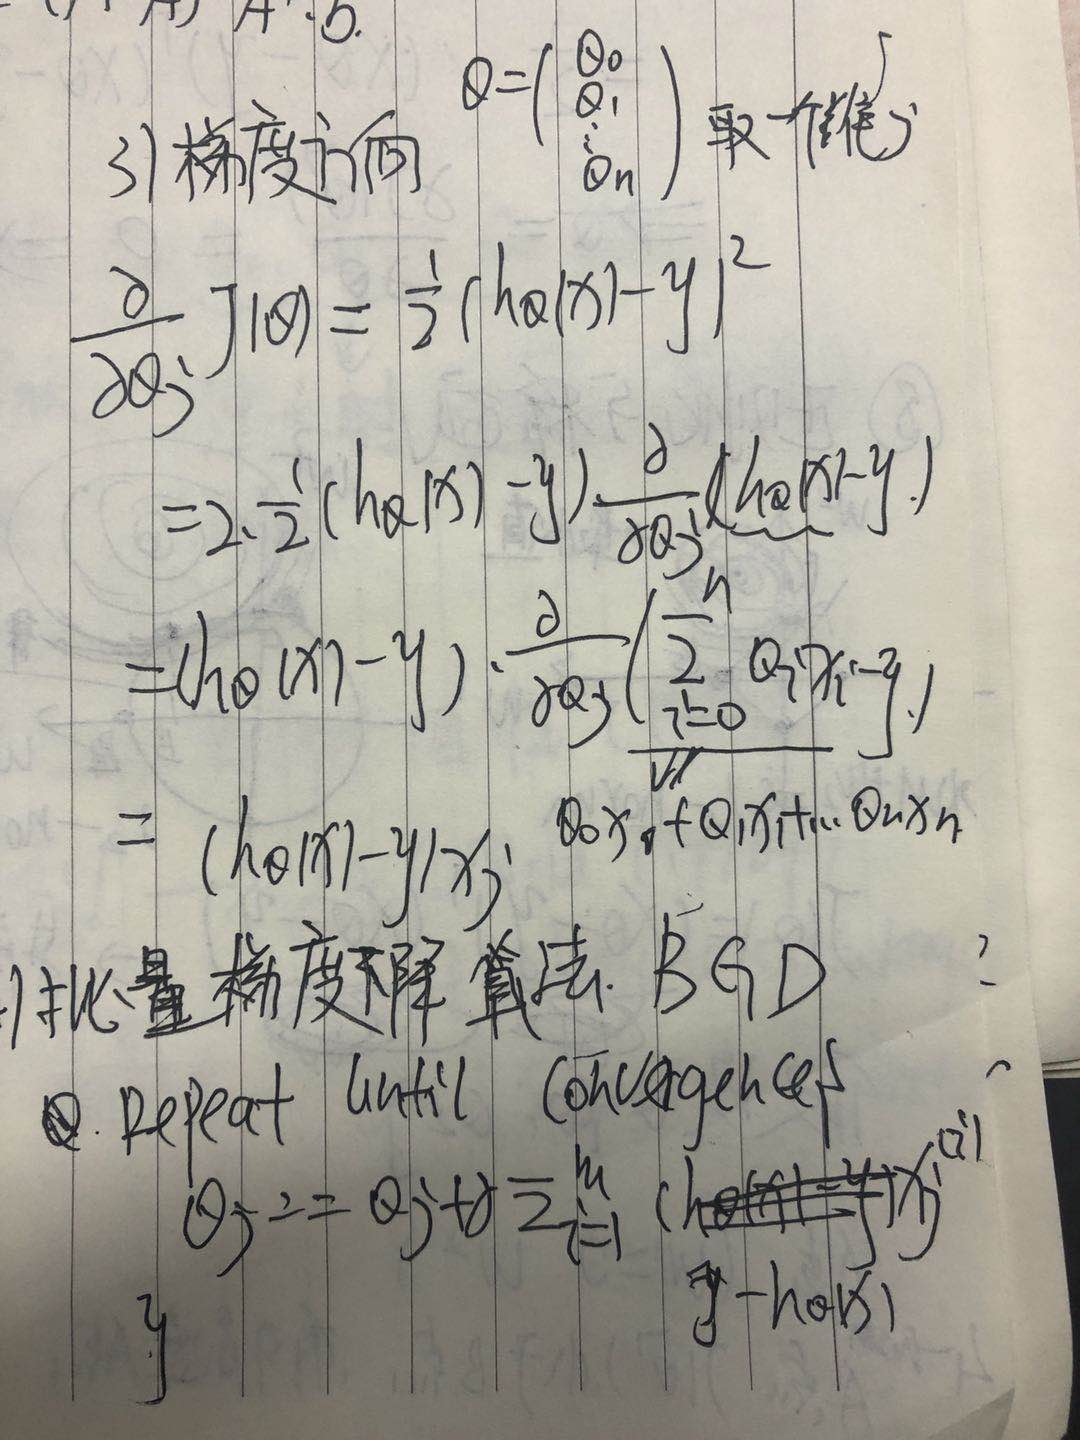 A) A^T·b.
3) 梯度方向 θ = (θ0 θ1 ⋮ θn) 取一个维 j
∂/∂θj J(θ) = 1/2 (hθ(x) - y)^2
= 2·1/2 (hθ(x) - y)·∂/∂θj (hθ(x) - y)
= (hθ(x) - y)·∂/∂θj (Σ_{i=0}^{n} θi xi - y)
θ0x0 + θ1x1 + ... θnxn
= (hθ(x) - y) xj
) 批量梯度下降算法. BGD
Repeat until convergence {
θj := θj + α Σ_{i=1}^{m} (hθ(x) - y) xj^(i)
y - hθ(x)
}